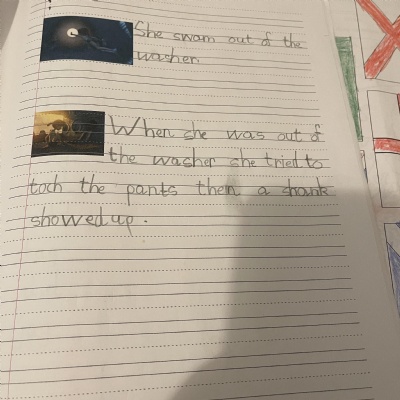 She swam out of the
washer
When she was out of
the washer she tried to
toch the pants then a shank
showed up.